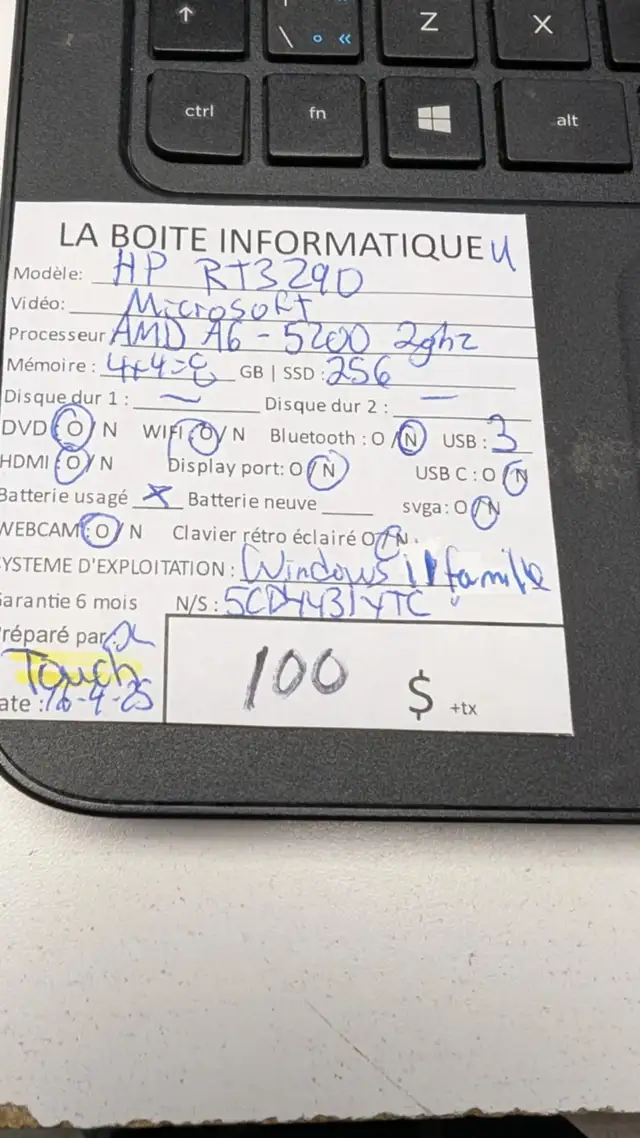 ↑ \ ° « Z X
ctrl fn alt
LA BOITE INFORMATIQUE U
Modèle: HP RT3290
Vidéo: Microsoft
Processeur AMD A6-5200 2ghz
Mémoire : 4+4=8 GB | SSD : 256
Disque dur 1 : — Disque dur 2 : —
DVD O / N WIFI O / N Bluetooth : O / N USB : 3
HDMI : O / N Display port: O / N USB C : O / N
Batterie usagé X Batterie neuve ____ svga: O / N
WEBCAM: O / N Clavier rétro éclairé O / N
SYSTEME D'EXPLOITATION : Windows 11 famille
Garantie 6 mois N/S :
Préparé par:
Touch
ate : 16-4-25
100 $ +tx